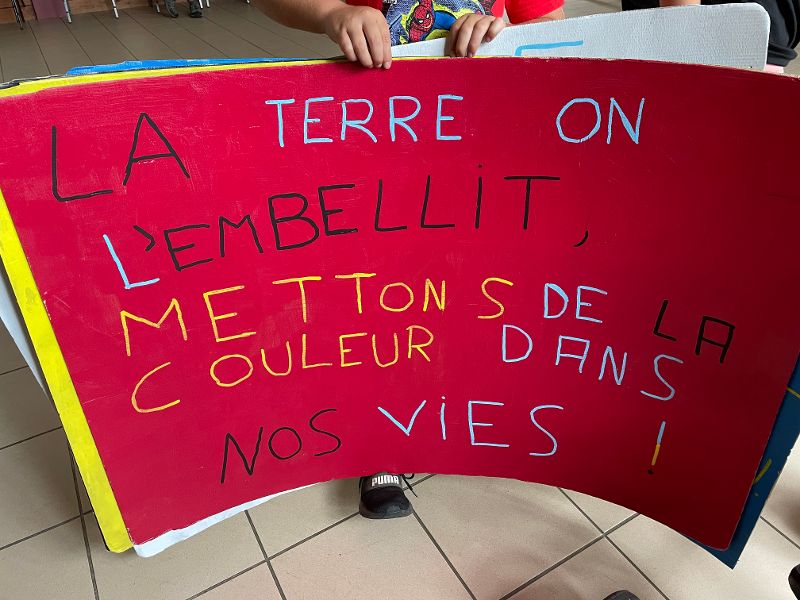 LA TERRE ON
L'EMBELLIT,
METTONS DE LA
COULEUR DANS
NOS VIES !
PUMA